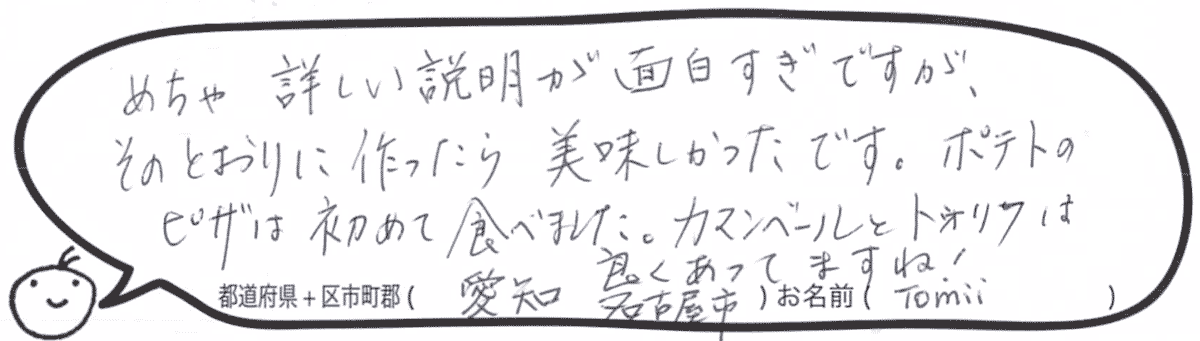 めちゃ 詳しい説明が面白すぎですが、
そのとおりに作ったら美味しかったです。ポテトの
ピザは初めて食べました。カマンベールとトリュフは
良くあってますね!
都道府県+区市町郡( 愛知 名古屋市 )お名前( Tomii )